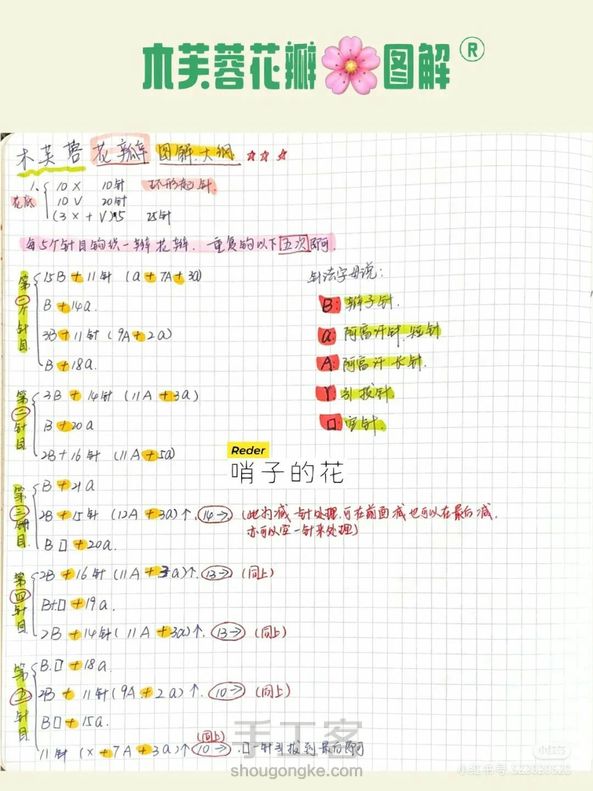 木芙蓉花瓣🌸图解®
木芙蓉 花瓣 图解.大纲 ☆☆☆
1. 10X 10针 环形起针
花底 10V 20针
(3X+V)*5 25针
每5个针目钩织一瓣花瓣. 重复钩以下五次即可.
第一个针目
15B+11针 (a+7A+3a)
B+14a
3B+11针 (9A+2a)
B+18a.
针法字母说:
B: 辫子针.
a: 阿富汗针,短针
A: 阿富汗长针.
Y: 引拔针.
口: 空针.
第二针目
3B+14针 (11A+3a)
B+20a
2B+16针 (11A+5a)
Reder
哨子的花
第三针目
B+21a
2B+15针 (12A+3a)↑. 14→ (此为减一针处理,可在前面减也可以在最后减.
亦可以空一针来处理)
B口+20a.
第四针目
2B+16针 (11A+3a)↑. 13→ (同上)
B+口+19a.
2B+14针 (11A+3a)↑. 13→ (同上)
第五针目
B.口+18a.
2B+11针 (9A+2a)↑. 10→ (同上)
B口+15a.
(同上)
11针 (x+7A+3a)↑ 10→. 口一针引拔到最后即可
手工客
shougongke.com
小红书
小红书号: